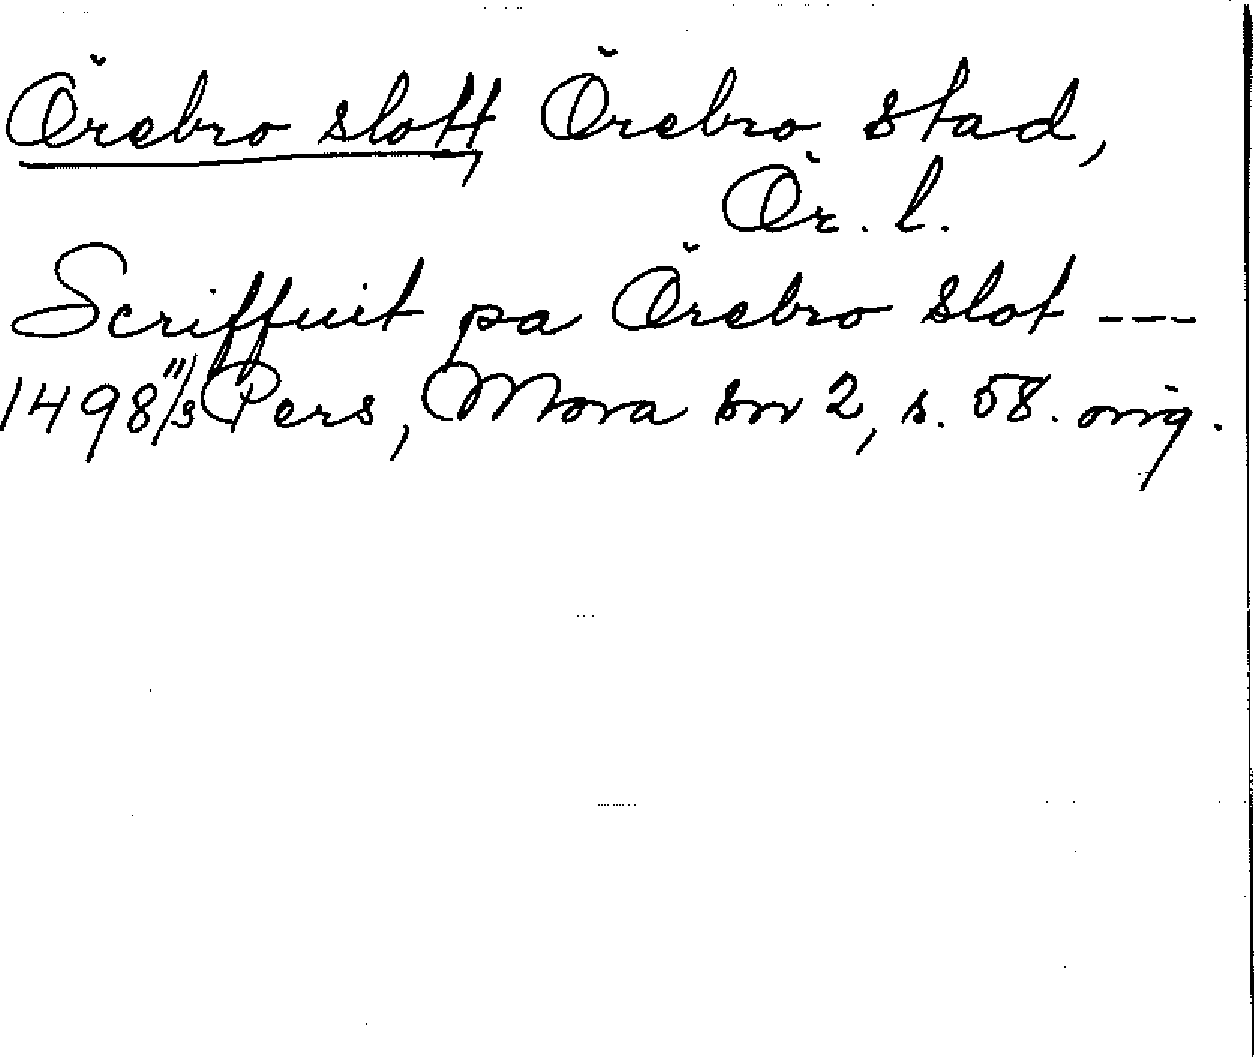 Örebro slott, Örebro stad,
Ör. l.
Scriffuit pa Örebro slot ---
1498 11/3 Pers, Mora br 2, s. 58. orig.